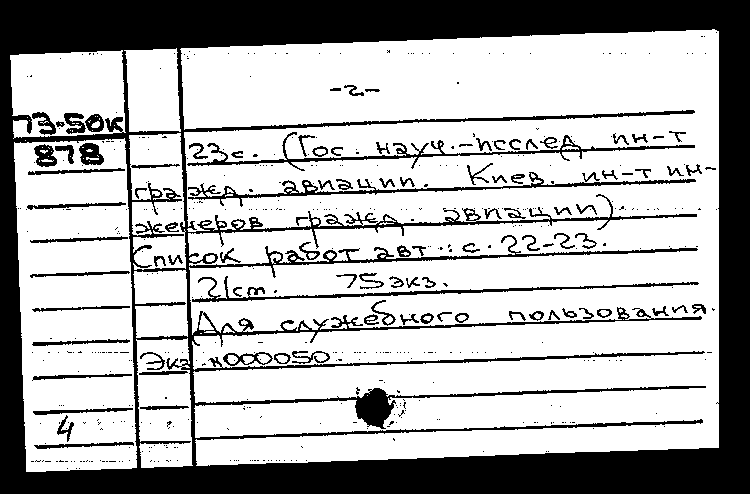 -2-
73-50к
878
23с. (Гос. науч.-исслед. ин-т
гражд. авиации. Киев. ин-т ин-
женеров гражд. авиации).
Список работ авт.: с. 22-23.
21см. 75 экз.
Для служебного пользования.
Экз. н000050.
4